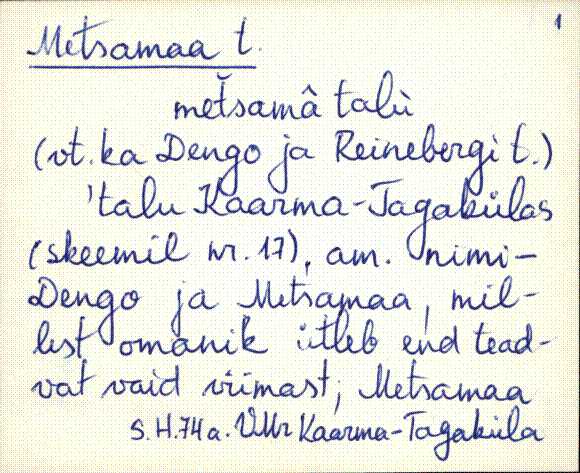 1
Metsamaa t.
metšamâ talù
(vt. ka Dengo ja Reinebergi t.)
'talu Kaarma-Tagakülas
(skeemil nr. 17), am. nimi-
Dengo ja Metsamaa, mil-
lest omanik ütleb end tead-
vat vaid viimast; Metsamaa
S. H. 74 a. VMr Kaarma-Tagaküla